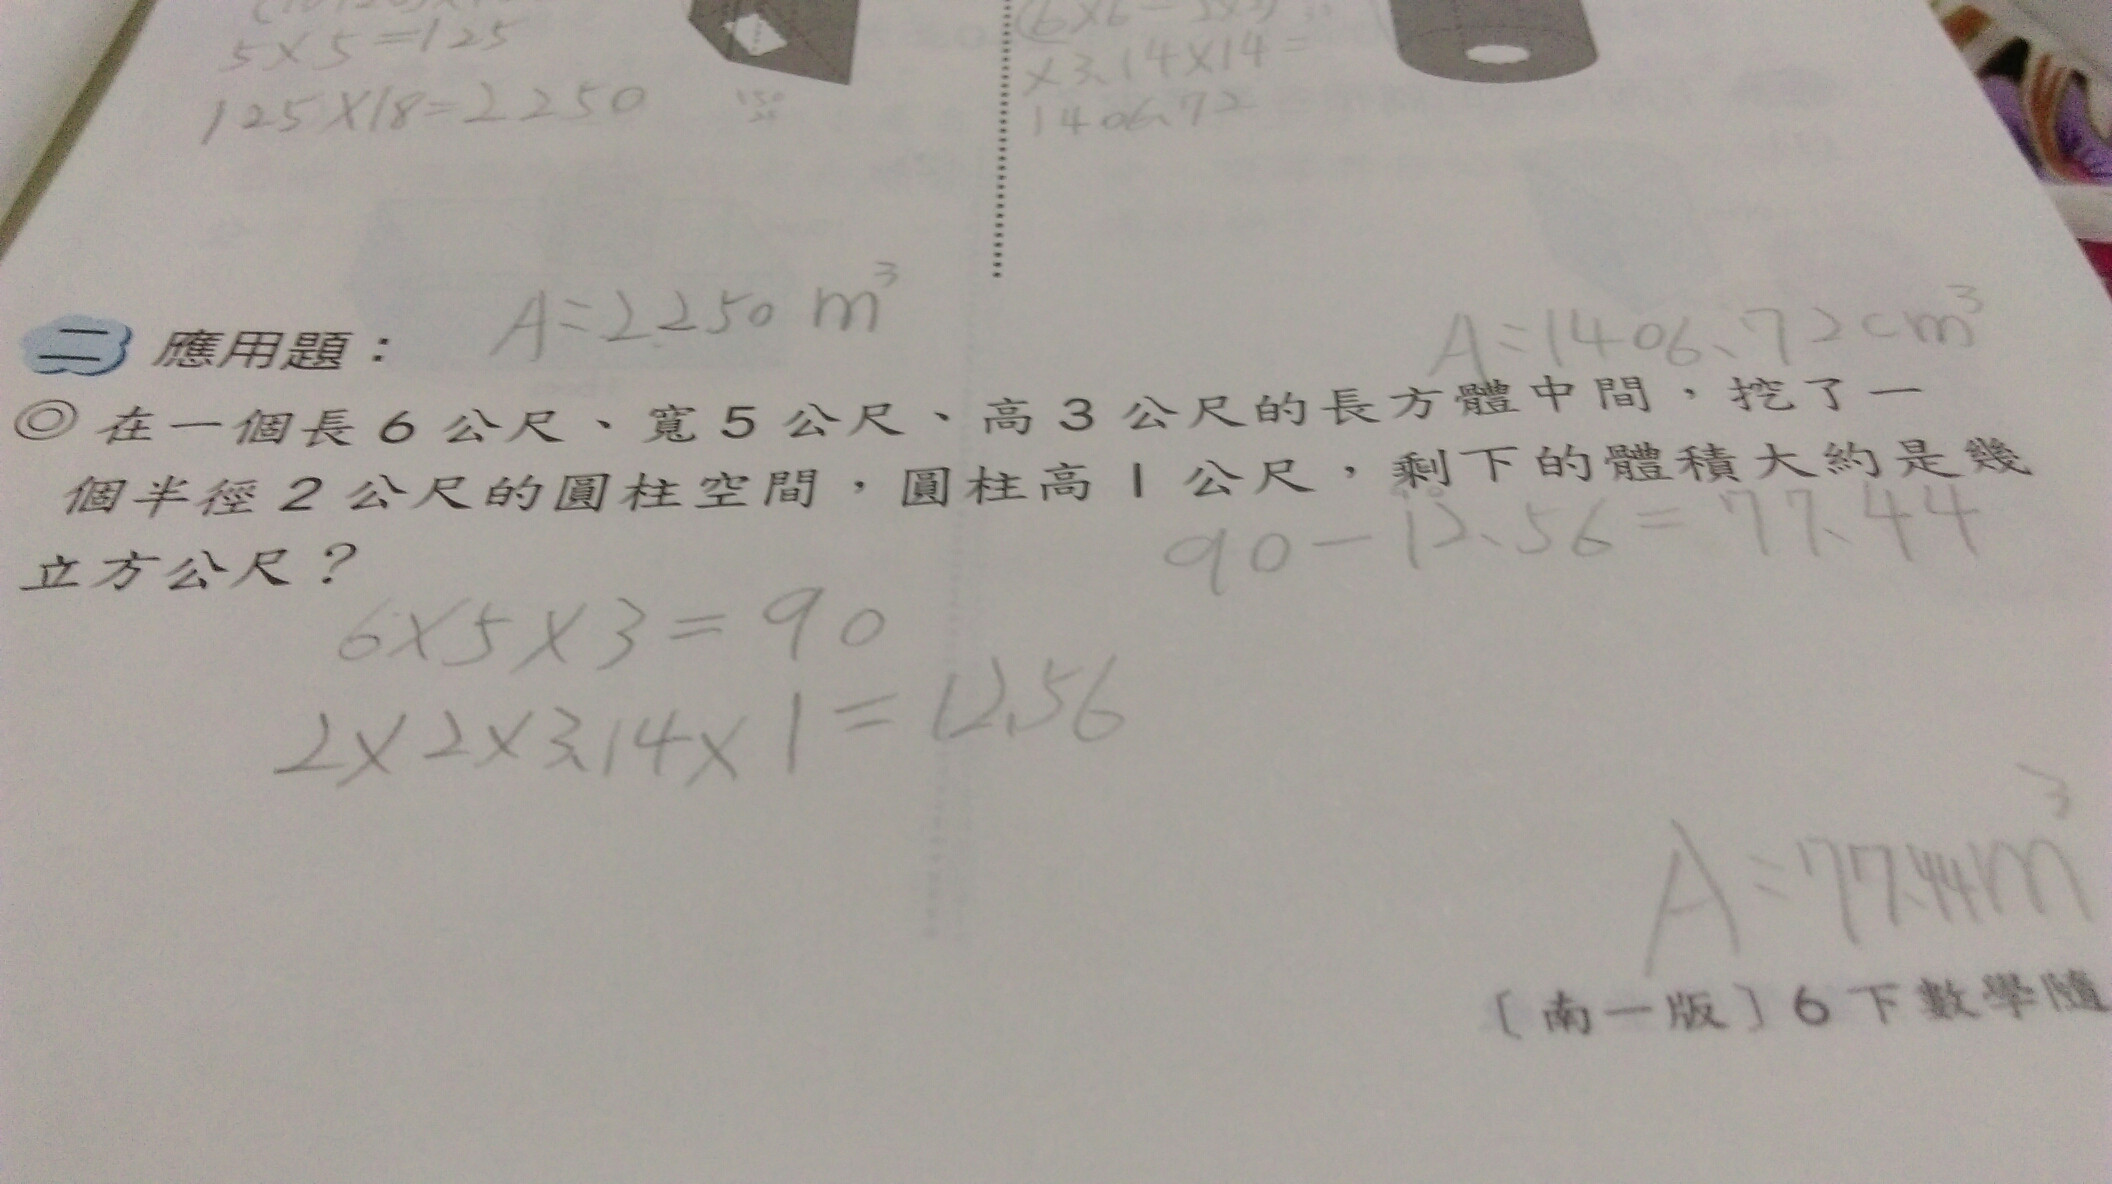 5×5=125
125×18=2250
×3.14×14=
1406.72
A=2250 m³
A=1406.72cm³
二 應用題：
◎在一個長6公尺、寬5公尺、高3公尺的長方體中間，挖了一
個半徑2公尺的圓柱空間，圓柱高1公尺，剩下的體積大約是幾
立方公尺？
90-12.56=77.44
6×5×3=90
2×2×3.14×1=12.56
A=77.44m³
〔南一版〕6下數學隨